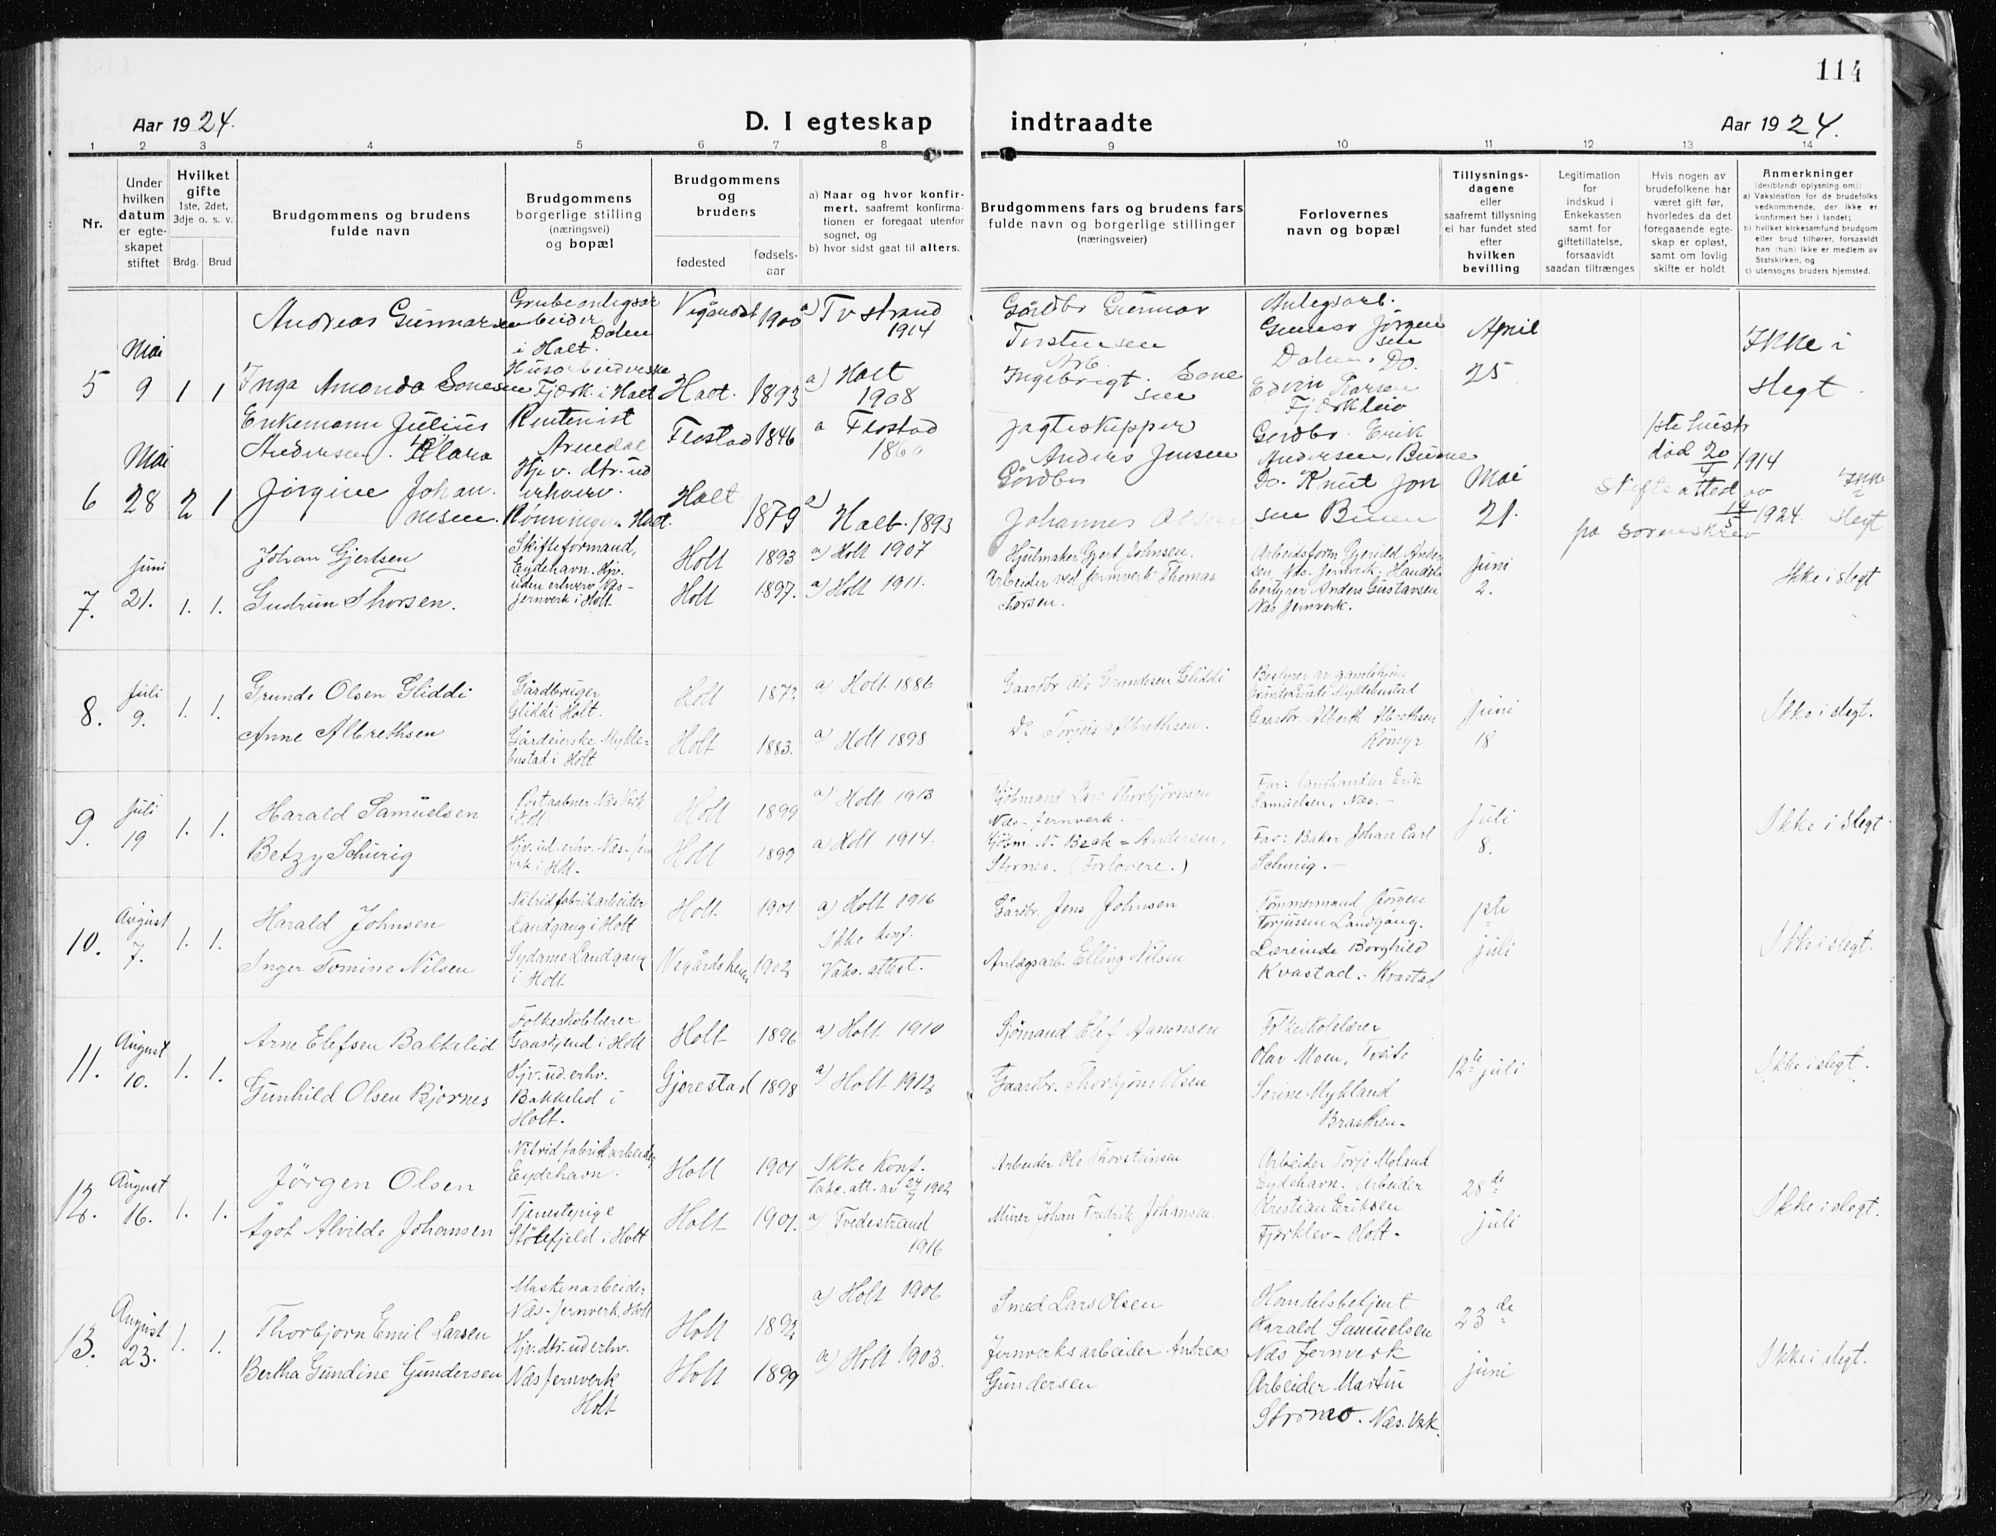 114
Aar 1924.
D. I egteskap
indtraadte
Aar 1924.
1 2 3 4 5 6 7 8 9 10 11 12 13 14
Nr.
Under
hvilken
datum
er egte-
skapet
stiftet
Hvilket
gifte
1ste, 2det,
3dje o. s. v.
Brdg.
Brud
Brudgommens og brudens
fulde navn
Brudgommens
borgerlige stilling
(næringsvei)
og bopæl
Brudgommens
og
brudens
fødested
fødsels-
aar
a) Naar og hvor konfir-
mert, saafremt konfirma-
tionen er foregaat utenfor
sognet, og
b) hvor sidst gaat til alters.
Brudgommens fars og brudens fars
fulde navn og borgerlige stillinger
(næringsveier)
Forlovernes
navn og bopæl
Tillysnings-
dagene
eller
saafremt tillysning
ei har fundet sted
efter
hvilken
bevilling
Legitimation
for
indskud i
Enkekassen
samt for
giftetillatelse,
forsaavidt
saadan tiltrænges
Hvis nogen av
brudefolkene har
været gift før,
hvorledes da det
foregaaende egte-
skap er opløst,
samt om lovlig
skifte er holdt
Anmerkninger
(deriblendt oplysning om):
a) Vaksination for de brudefolks
vedkommende, der ikke er
konfirmert her i landet;
b) hvilket kirkesamfund brudgom
eller brud tilhører, forsaavidt
han (hun) ikke er medlem av
Statskirken, og
c) utensogns bruders hjemsted.
5
Mai
9
1 1
Andreas Gunnarsen
Grubeanlegsar
beider
Dalen
i Holt.
1900
a) Tvstrand
1914
Gårdbr Gunnar
Torstensen
Anlegsarb.
Gunnar Jørgen
sen
Dalen. Do.
April
25
Ikke i
slegt.
Inga Amanda Sonesen
Fjærk. i Holt
Holt. 1893
a) Holt
1908
Arb.
Ingebrigt Sone
sen
Edvin Larsen
Fjærkleiv
6
Mai
28
2 1
Enkemann Julius
Andersen. Klara
Jørgine Johan
nesen.
Rentenist
Arendal
Hjv. dtr. ud
erhverv.
Rønningen Holt.
Flostad 1846
a Flostad
Holt
1879
a) Holt. 1893
Jagteskipper
Anders Jensen
Gårdbr
Johannes Olsen
Gårdbr. Erik
Andersen, Buene
Do. Knut Jon
sen Buen
Mai
21.
1ste hustr
død 20/4 1914
Skifteattest av
14/5 1924.
på sorenskrev
Ikke
i
slegt
7.
Juni
21.
1. 1.
Johan Gjertsen
Gudrun Thorsen.
Skifteformand,
Eydehavn. Hjv.
uden erhverv. Næs-
jernverk i Holt.
Holt 1893
Holt 1897.
a) Holt 1907
a) Holt 1911.
Hjulmaker Gjert Johnsen.
Arbeider ved jernverk Thomas
Torsen.
Arbeidsform. Gjerulf Ander
sen, Næs. Jernverk. Handels
bestyrer Anders Gustavsen
Næs Jernverk.
Juni
2.
Ikke i slegt
8.
Juli
9.
1. 1.
Grunde Olsen Gliddi
Anne Albrethsen
Gårdbruger
Gliddi Holt.
Gårdeierske Mykle-
bustad i Holt
Holt 1872.
Holt 1883.
a) Holt. 1886
a) Holt 1898
Gaardbr. Ole Grundesen Gliddi
Do Torjus Albrethsen.
Bestyrer av gamlehjem
Grunde Lunde Myklebustad
Gaardbr. Alberth Albrethsen
Rømyr
Juni
18
Ikke i slegt.
9.
Juli
19
1. 1.
Harald Samuelsen
Betzy Schurig
Postaabner Næs Verk
i Holt.
Hjv. ud. erhv. Næs-jern
verk i Holt.
Holt 1899
Holt 1899
a) Holt 1913
a) Holt 1914.
Kjøbmand Lars Thorbjørnsen
Næs-jernverk.-
Kjøbm. N. Beck = Andersen,
Stornes. (Forlovere.)
Far: Landhandler Erik
Samuelsen, Næs.-
Far: Baker Johan Carl
Schurig.-
Juli
8.
Ikke i slegt.
10.
August
7.
1. 1.
Harald Johnsen
Inger Tomine Nilsen
Nitridfabrikarbeider
Landgang i Holt
Sydame Landgang
i Holt
Holt. 1901
Vegårdsheien 1902
a) Holt 1916
Ikke konf.
Vaks. attest.
Gårdbr. Jens Johnsen
Anlægsarb. Elling Nilsen
Tømmermand Jørgen
Torjussen Landgang.
Lærerinde Borghild
Kvastad. - Kvastad
1ste
juli
Ikke i slegt.
11.
August
10.
1. 1.
Arne Elefsen Bakkelid
Gunhild Olsen Bjørnes
Folkeskolelærer
Gaaskjend i Holt
Hjv. ud. erhv.
Bakkelid i
Holt.
Holt 1896
Gjerestad 1898
a) Holt. 1910
a) Holt 1912
Sjømand Elef Aanonsen
Gaardbr. Thorbjørn Olsen
Folkeskolelærer
Olav Moen, Tveite
Serine Mykland
Braathen.
12te juli
Ikke i slegt.
12.
August
16.
1. 1.
Jørgen Olsen
Ågot Alvilde Johansen
Nitridfabrikarbeider
Eydehavn.
Tjenestepige
Stølefjeld i Holt
Holt 1901
Holt 1901.
Ikke Konf.
a) Tvedestrand
1916
Arbeider Ole Thorsteinsen
Murer Johan Fredrik Johansen.
Arbeider Torje Moland
Eydehavn. Arbeider
Kristian Eriksen
Fjærklev - Holt.
28de
juli
Ikke i slegt.
13.
August
23.
1. 1.
Thorbjørn Emil Larsen
Bertha Gundine Gundersen
Maskenarbeider
Næs-jernverk. Holt
Hjv. dtr. ud erhv.
Næs jernverk
Holt
Holt 1892
Holt 1899
a) Holt 1906
a) Holt 1903.
Smed Lars Olsen
Jernverksarbeider Andreas
Gundersen
Handelsbetjent
Harald Samuelsen
Næs Jernverk
Arbeider Martin
Strømo. Næs. Verk.
23de
juni
Ikke i slegt.